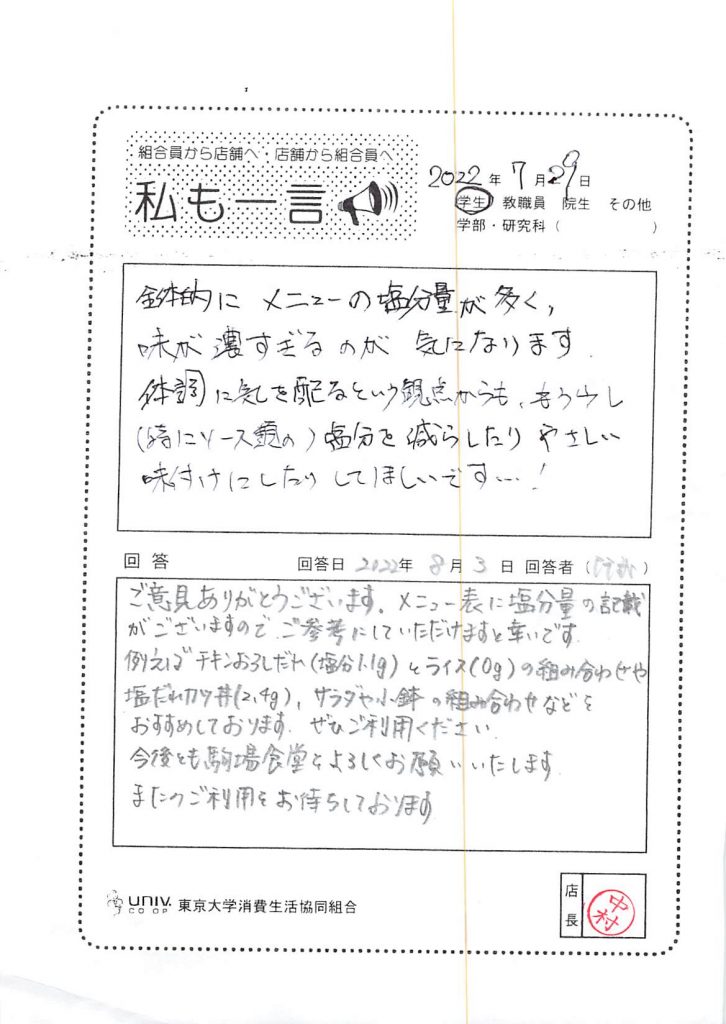 組合員から店舗へ・店舗から組合員へ
私も一言
2022年 7月29日
学生 教職員 院生 その他
学部・研究科( )
全体的に メニューの塩分量が多く,
味が濃すぎるのが 気になります.
体調に気を配るという観点からも、もう少し
(特にソース類の)塩分を減らしたり やさしい
味付けにしたりしてほしいです…!
回答 回答日 2022年 8月 3日 回答者( )
ご意見ありがとうございます。メニュー表に塩分量の記載
がございますので、ご参考にしていただけますと幸いです
例えば チキンおろしだれ(塩分1.1g)とライス(0g)の組み合わせや
塩だれカツ丼(2.4g), サラダや小鉢の組み合わせなどを
おすすめしております. ぜひご利用ください.
今後とも駒場食堂をよろしくお願いいたします.
またのご利用をお待ちしております
UNIV. CO-OP 東京大学消費生活協同組合
店長 中村